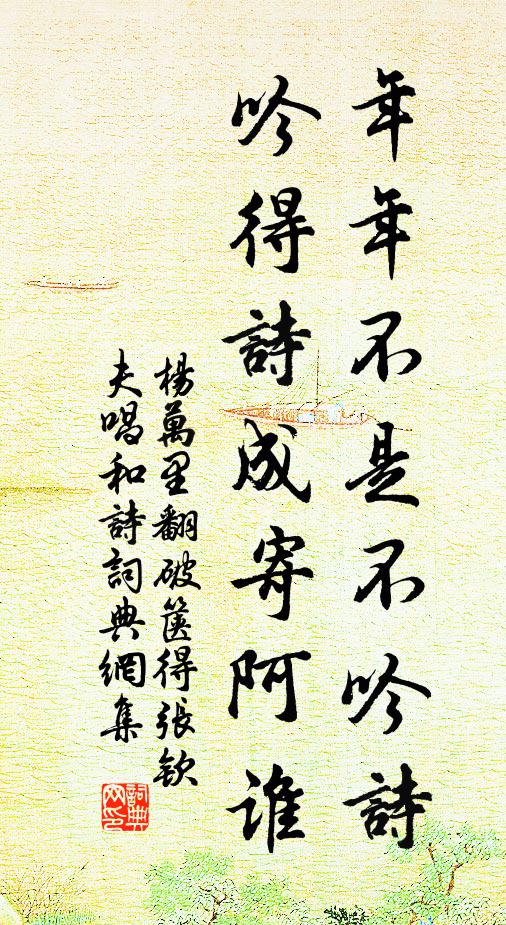 年年不是不吟詩
吟得詩成寄阿誰
楊萬里翻破篋得張欽
夫唱和詩詞典網集
詞典
网印